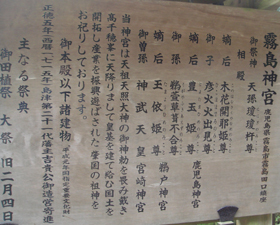 霧島神宮
鹿児島県霧島市霧島田口鎮座
御祭神
天饒国饒瓊杵尊
相殿
嫡后 木花開耶姫尊
御子 彦火火出見尊 鹿児島神宮
嫡后 豊玉姫尊
御孫 鸕鶿葺不合尊 鵜戸神宮
嫡后 玉依姫尊
御曽孫 神武天皇 宮崎神宮
当神宮は天祖天照大神の御神勅を畏み戴き
高千穂峯に天降りまして皇基を建て給ひ国土を
開拓し産業を振興遊ばされた肇国の祖神を
お祀りしております。
御本殿以下諸建物
正徳五年(西暦一七一五年)島津第二十一代藩主吉貴公御造営寄進
主なる祭典
御田植祭 大祭(旧二月四日